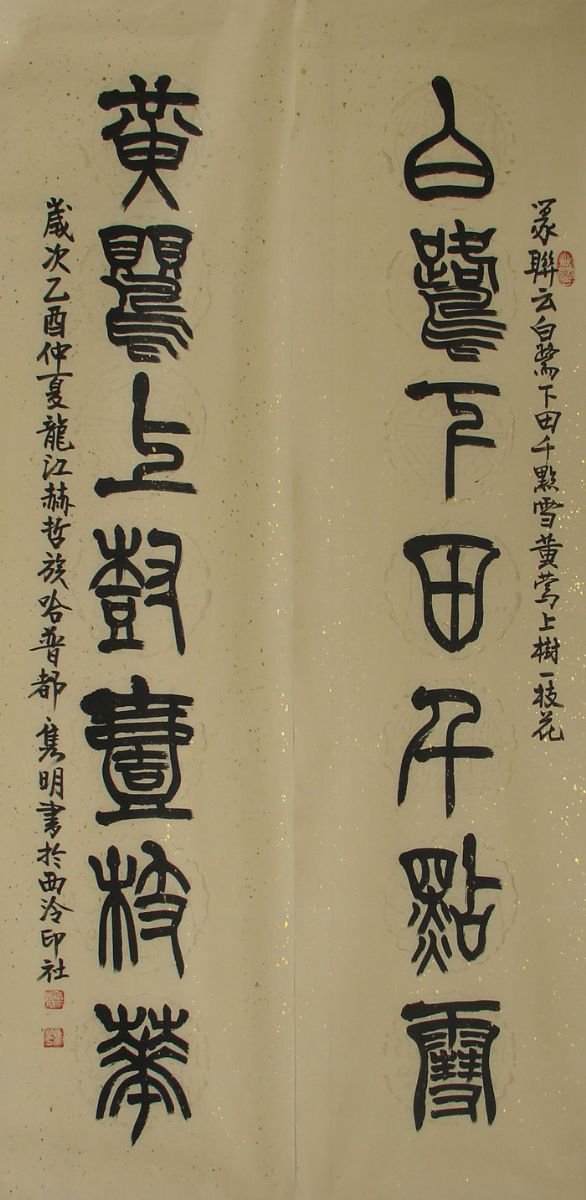 篆聯云白鷺下田千點雪黄鶯上樹一枝花
白鷺下田千點雪
黄鸎上尌壹枝華
歲次乙酉仲夏龍江赫哲族哈普都雋明書於西泠印社